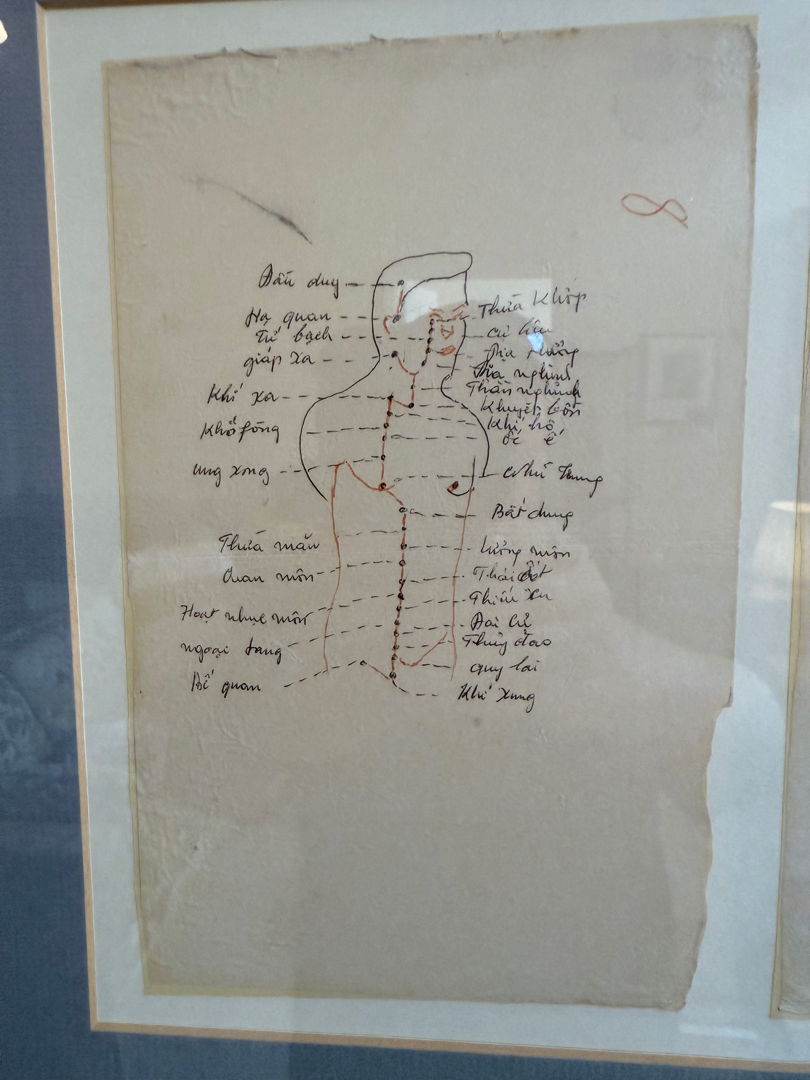 8
Đầu duy
Hạ quan
Tứ bạch
giáp xa
Khí xá
Khố fòng
ưng xong
Thừa mãn
Quan môn
Hoạt nhục môn
ngoại lang
Bễ quan
Thừa Khấp
cự liêu
Địa
Đại nghinh
Nhân nghinh
Khuyết bồn
Khí hộ
ốc ế
nhũ trung
Bất dung
lương môn
Thái ất
Thiên xu
Đại cự
Thủy đạo
quy lai
Khí xung